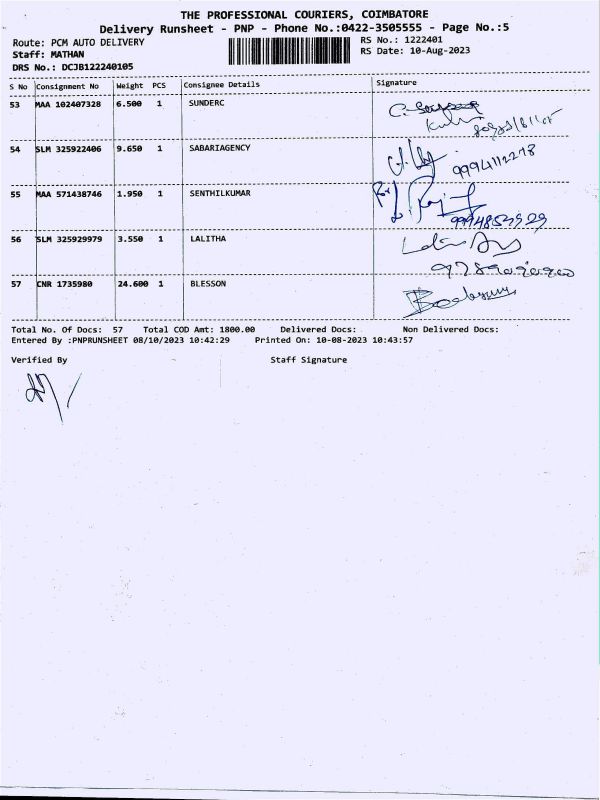 THE PROFESSIONAL COURIERS, COIMBATORE
Delivery Runsheet - PNP - Phone No.:0422-3505555 - Page No.:5
Route: PCM AUTO DELIVERY
Staff: MATHAN
DRS No.: DCJB122240105
RS No.: 1222401
RS Date: 10-Aug-2023
S No Consignment No Weight PCS Consignee Details Signature
53 MAA 102407328 6.500 1 SUNDERC
54 SLM 325922406 9.650 1 SABARIAGENCY
9994112278
55 MAA 571438746 1.950 1 SENTHILKUMAR
56 SLM 325929979 3.550 1 LALITHA
57 CNR 1735980 24.600 1 BLESSON
Total No. Of Docs: 57 Total COD Amt: 1800.00 Delivered Docs: Non Delivered Docs:
Entered By :PNPRUNSHEET 08/10/2023 10:42:29 Printed On: 10-08-2023 10:43:57
Verified By Staff Signature